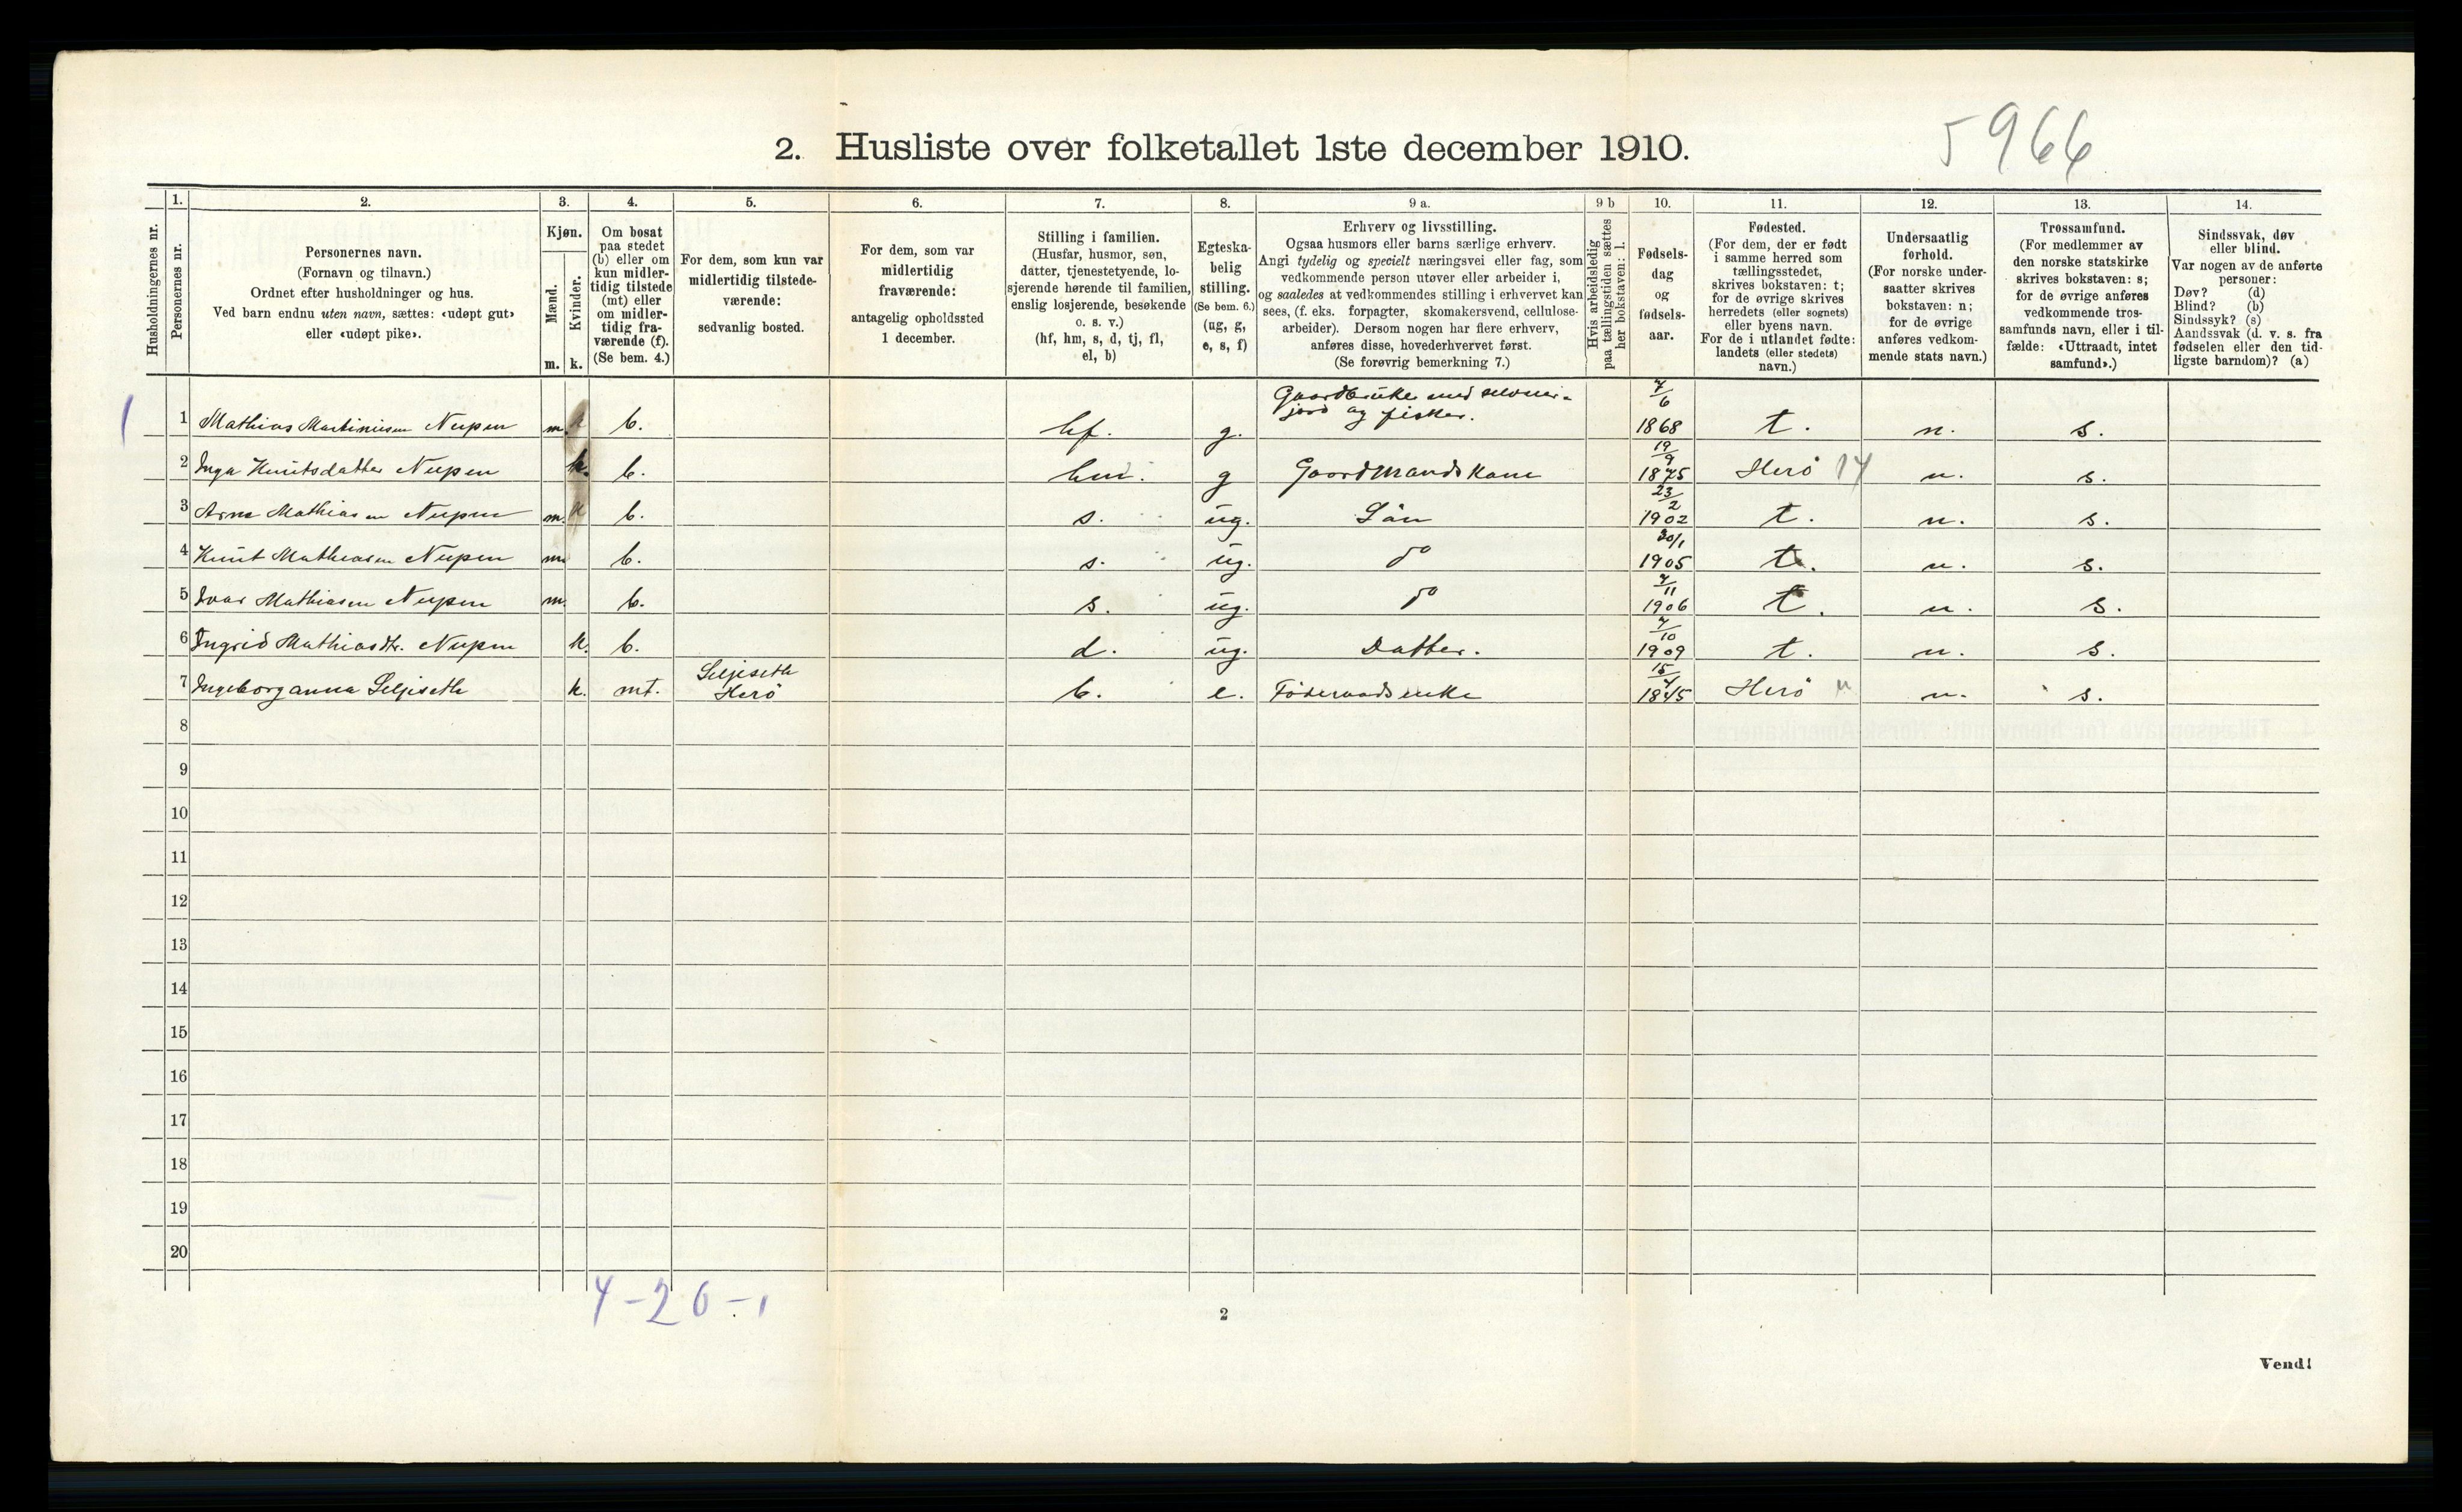 5966
2. Husliste over folketallet 1ste december 1910.
Husholdningernes nr.
1. Personernes nr.
2. Personernes navn.
(Fornavn og tilnavn.)
Ordnet efter husholdninger og hus.
Ved barn endnu uten navn, sættes: «udøpt gut»
eller «udøpt pike».
3. Kjøn.
Mænd. m.
Kvinder. k.
4. Om bosat
paa stedet
(b) eller om
kun midler-
tidig tilstede
(mt) eller
om midler-
tidig fra-
værende (f).
(Se bem. 4.)
5. For dem, som kun var
midlertidig tilstede-
værende:
sedvanlig bosted.
6. For dem, som var
midlertidig
fraværende:
antagelig opholdssted
1 december.
7. Stilling i familien.
(Husfar, husmor, søn,
datter, tjenestetyende, lo-
sjerende hørende til familien,
enslig losjerende, besøkende
o. s. v.)
(hf, hm, s, d, tj, fl,
el, b)
8. Egteska-
belig
stilling.
(Se bem. 6.)
(ug, g,
e, s, f)
9 a. Erhverv og livsstilling.
Ogsaa husmors eller barns særlige erhverv.
Angi tydelig og specielt næringsvei eller fag, som
vedkommende person utøver eller arbeider i,
og saaledes at vedkommendes stilling i erhvervet kan
sees, (f. eks. forpagter, skomakersvend, cellulose-
arbeider). Dersom nogen har flere erhverv,
anføres disse, hovederhvervet først.
(Se forøvrig bemerkning 7.)
9 b Hvis arbeidsledig
paa tællingstiden sættes
her bokstaven: l.
10. Fødsels-
dag
og
fødsels-
aar.
11. Fødested.
(For dem, der er født
i samme herred som
tællingsstedet,
skrives bokstaven: t;
for de øvrige skrives
herredets (eller sognets)
eller byens navn.
For de i utlandet fødte:
landets (eller stedets)
navn.)
12. Undersaatlig
forhold.
(For norske under-
saatter skrives
bokstaven: n;
for de øvrige
anføres vedkom-
mende stats navn.)
13. Trossamfund.
(For medlemmer av
den norske statskirke
skrives bokstaven: s;
for de øvrige anføres
vedkommende tros-
samfunds navn, eller i til-
fælde: «Uttraadt, intet
samfund».)
14. Sindssvak, døv
eller blind.
Var nogen av de anførte
personer:
Døv? (d)
Blind? (b)
Sindssyk? (s)
Aandssvak (d. v. s. fra
fødselen eller den tid-
ligste barndom)? (a)
1 Mathias Martinusen Nupen m. b. hf. g. Gaardbruker med selveier-
jord og fisker. 7/6 1868 t. n. s.
2 Inga Knutsdatter Nupen k. b. hm. g Gaardmandskone 19/9 1875 Herö 14 n. s.
3 Arne Mathiasen Nupen m. b. s. ug. Sön 23/2 1902 t. n. s.
4 Knut Mathiasen Nupen m b. s. ug. do 20/1 1905 t. n. s.
5 Ivar Mathiasen Nupen m. b. s. ug. do 7/11 1906 t. n. s.
6 Ingrid Mathiasdtr. Nupen k. b. d. ug. Datter. 7/10 1909 t. n. s.
7 Ingeborganna Seljiseth k. mt. Seljiseth
Herö b. e. Föderaadsenke 15/4 1845 Herö n. s.
8
9
10
11
12
13
14
15
16
17
18
19
20
4-20-1
2
Vend!